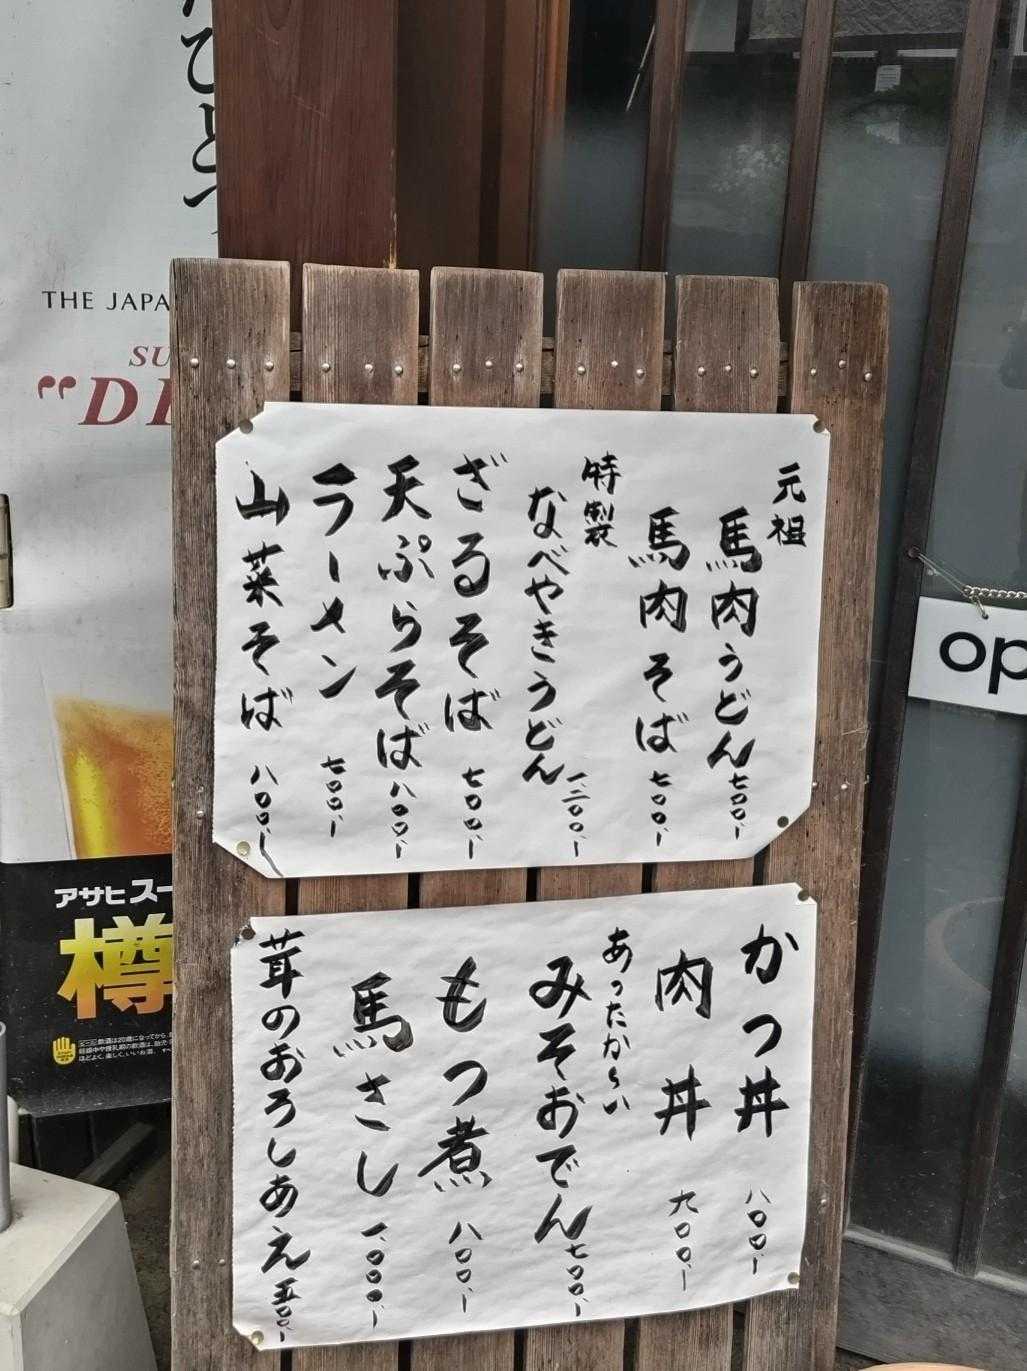 元祖
馬肉うどん 七〇〇、
馬肉そば 七〇〇、
特製
なべやきうどん 一、二〇〇、
ざるそば 七〇〇、
天ぷらそば 八〇〇、
ラーメン 七〇〇、
山菜そば 八〇〇、
かつ丼 八〇〇、
肉丼 九〇〇、
あったか〜い
みそおでん 七〇〇、
もつ煮 八〇〇、
馬さし 一、〇〇〇、
茸のおろしあえ 五〇〇、
THE JAPA
SU
"DI
アサヒスー
樽
op